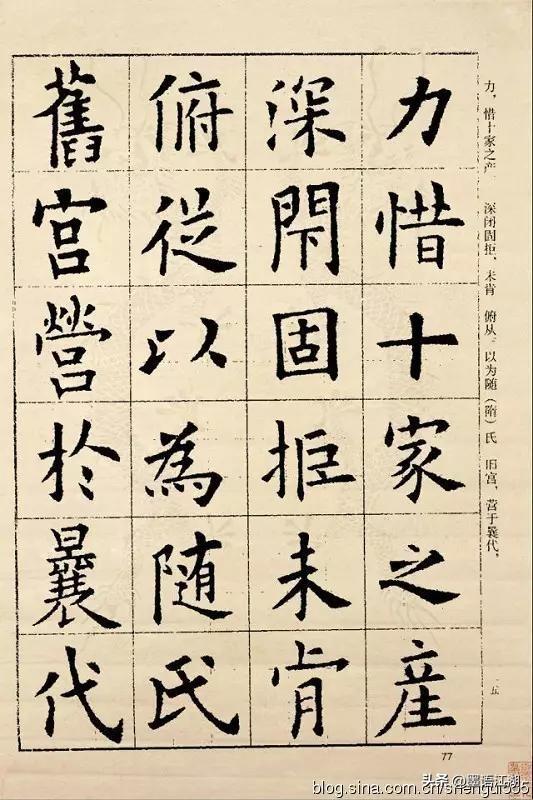 力惜十家之産
深閇固拒未肯
俯従以為随氏
舊宫營於曩代
力，惜十家之产 深闭固拒，未肯 俯从。以为随（隋）氏 旧宫，营于曩代，
五
77
头条 @墨语江湖
blog.sina.com.cn/shengui555